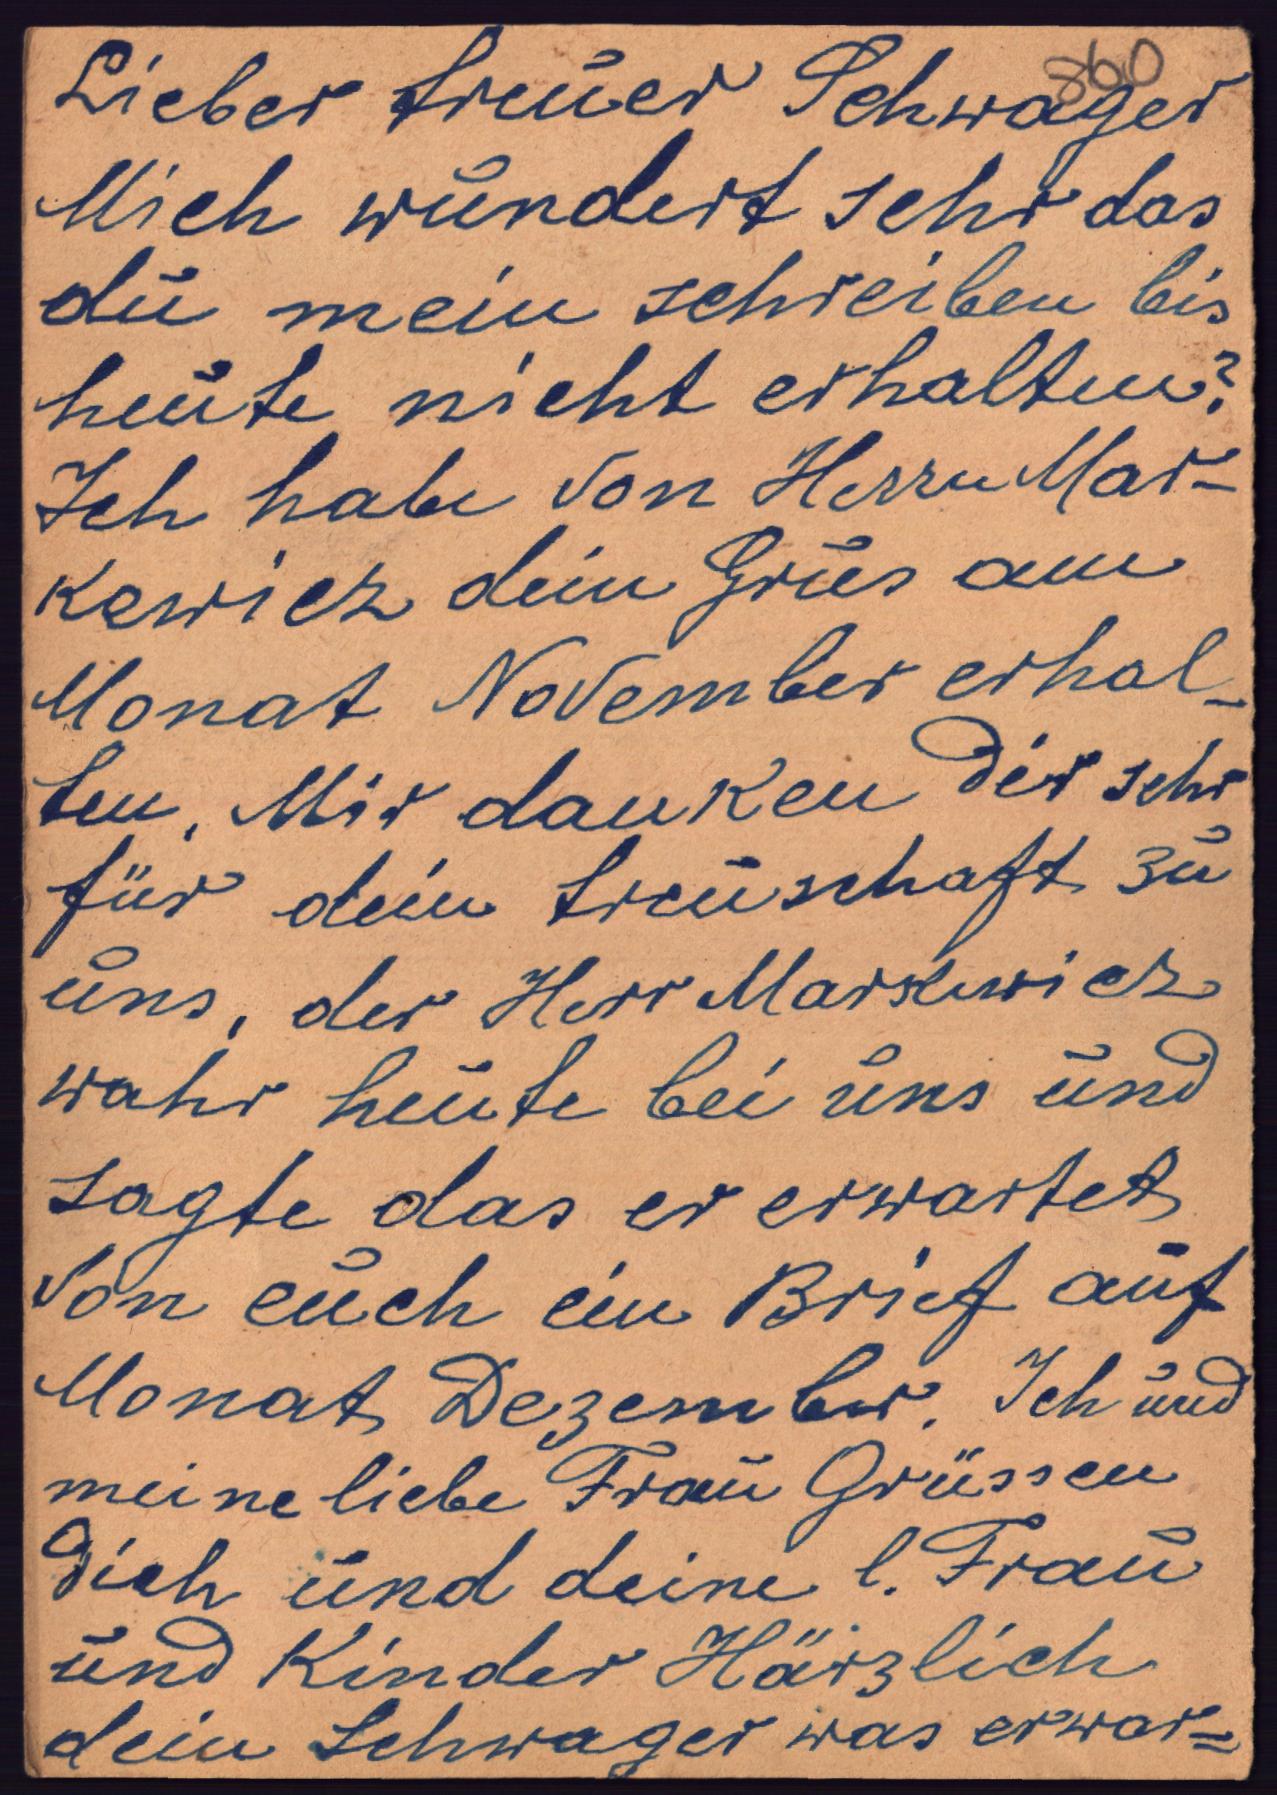 860
Lieber treuer Schwager
Mich wundert sehr das
du mein schreiben bis
heute nicht erhalten?
Ich habe von Herrn Mar-
kewicz dein Grus am
Monat November erhal-
ten, Mir danken Dir sehr
für dein treuschaft zu
uns, der Herr Markewicz
wahr heute bei uns und
sagte das er erwartet
von euch ein Brief auf
Monat Dezember. Ich und
meine liebe Frau Grüssen
Dich und deine l. Frau
und Kinder Härzlich
dein Schwager was erwar=